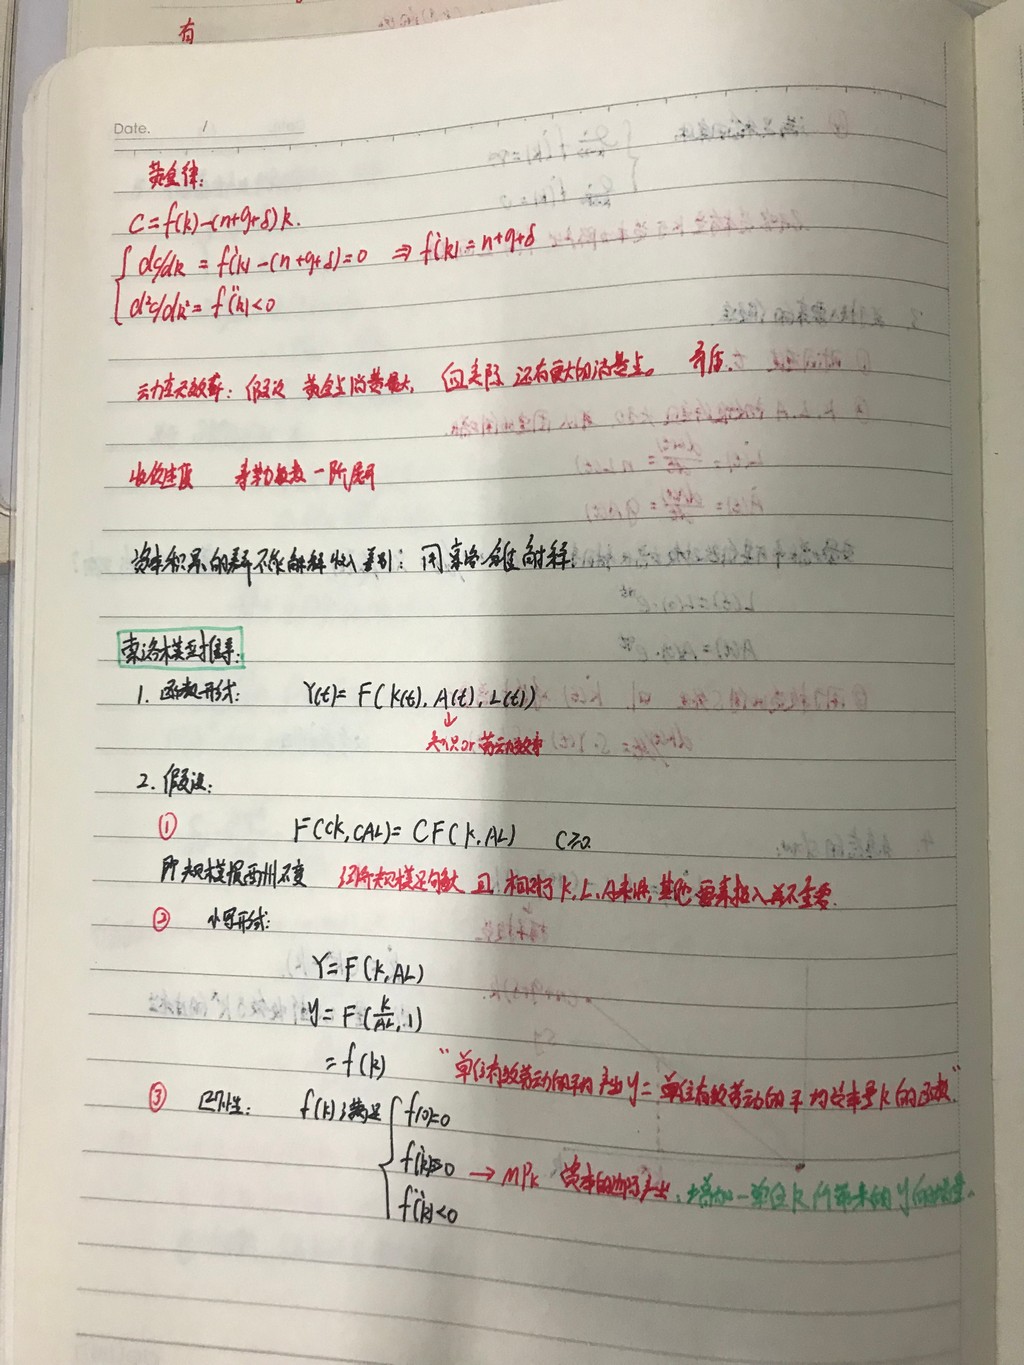 有
Date. /
黄金律:
C=f(k)-(n+g+δ)k.
{ dc/dk = f'(k)-(n+g+δ)=0 ⇒ f'(k)=n+g+δ
d²c/dk²=f''(k)<0
动态无效率: 假设 黄金点消费最大, 但实际 还有更大的消费点。 矛盾.
收敛速度 泰勒级数一阶展开
资本积累的差异不能解释收入差别: 用索洛
索洛模型推导:
1. 函数形式: Y(t)= F(K(t), A(t), L(t))
↓
知识or劳动效率
2. 假设:
① F(CK,CAL)=CF(K,AL) C≥0.
即规模报酬不变 经济规模足够大 且 相对于K,L,A来说,其他要素投入并不重要.
② 小写形式:
Y=F(K,AL)
y=F(K/AL,1)
=f(k) "单位有效劳动的平均产出y=单位有效劳动的平均资本量k的函数."
③ 凹性: f(k)满足 { f(0)=0
f'(k)>0 → MPK 资本的边际产出,增加一单位k所带来的y的增量。
f''(k)<0